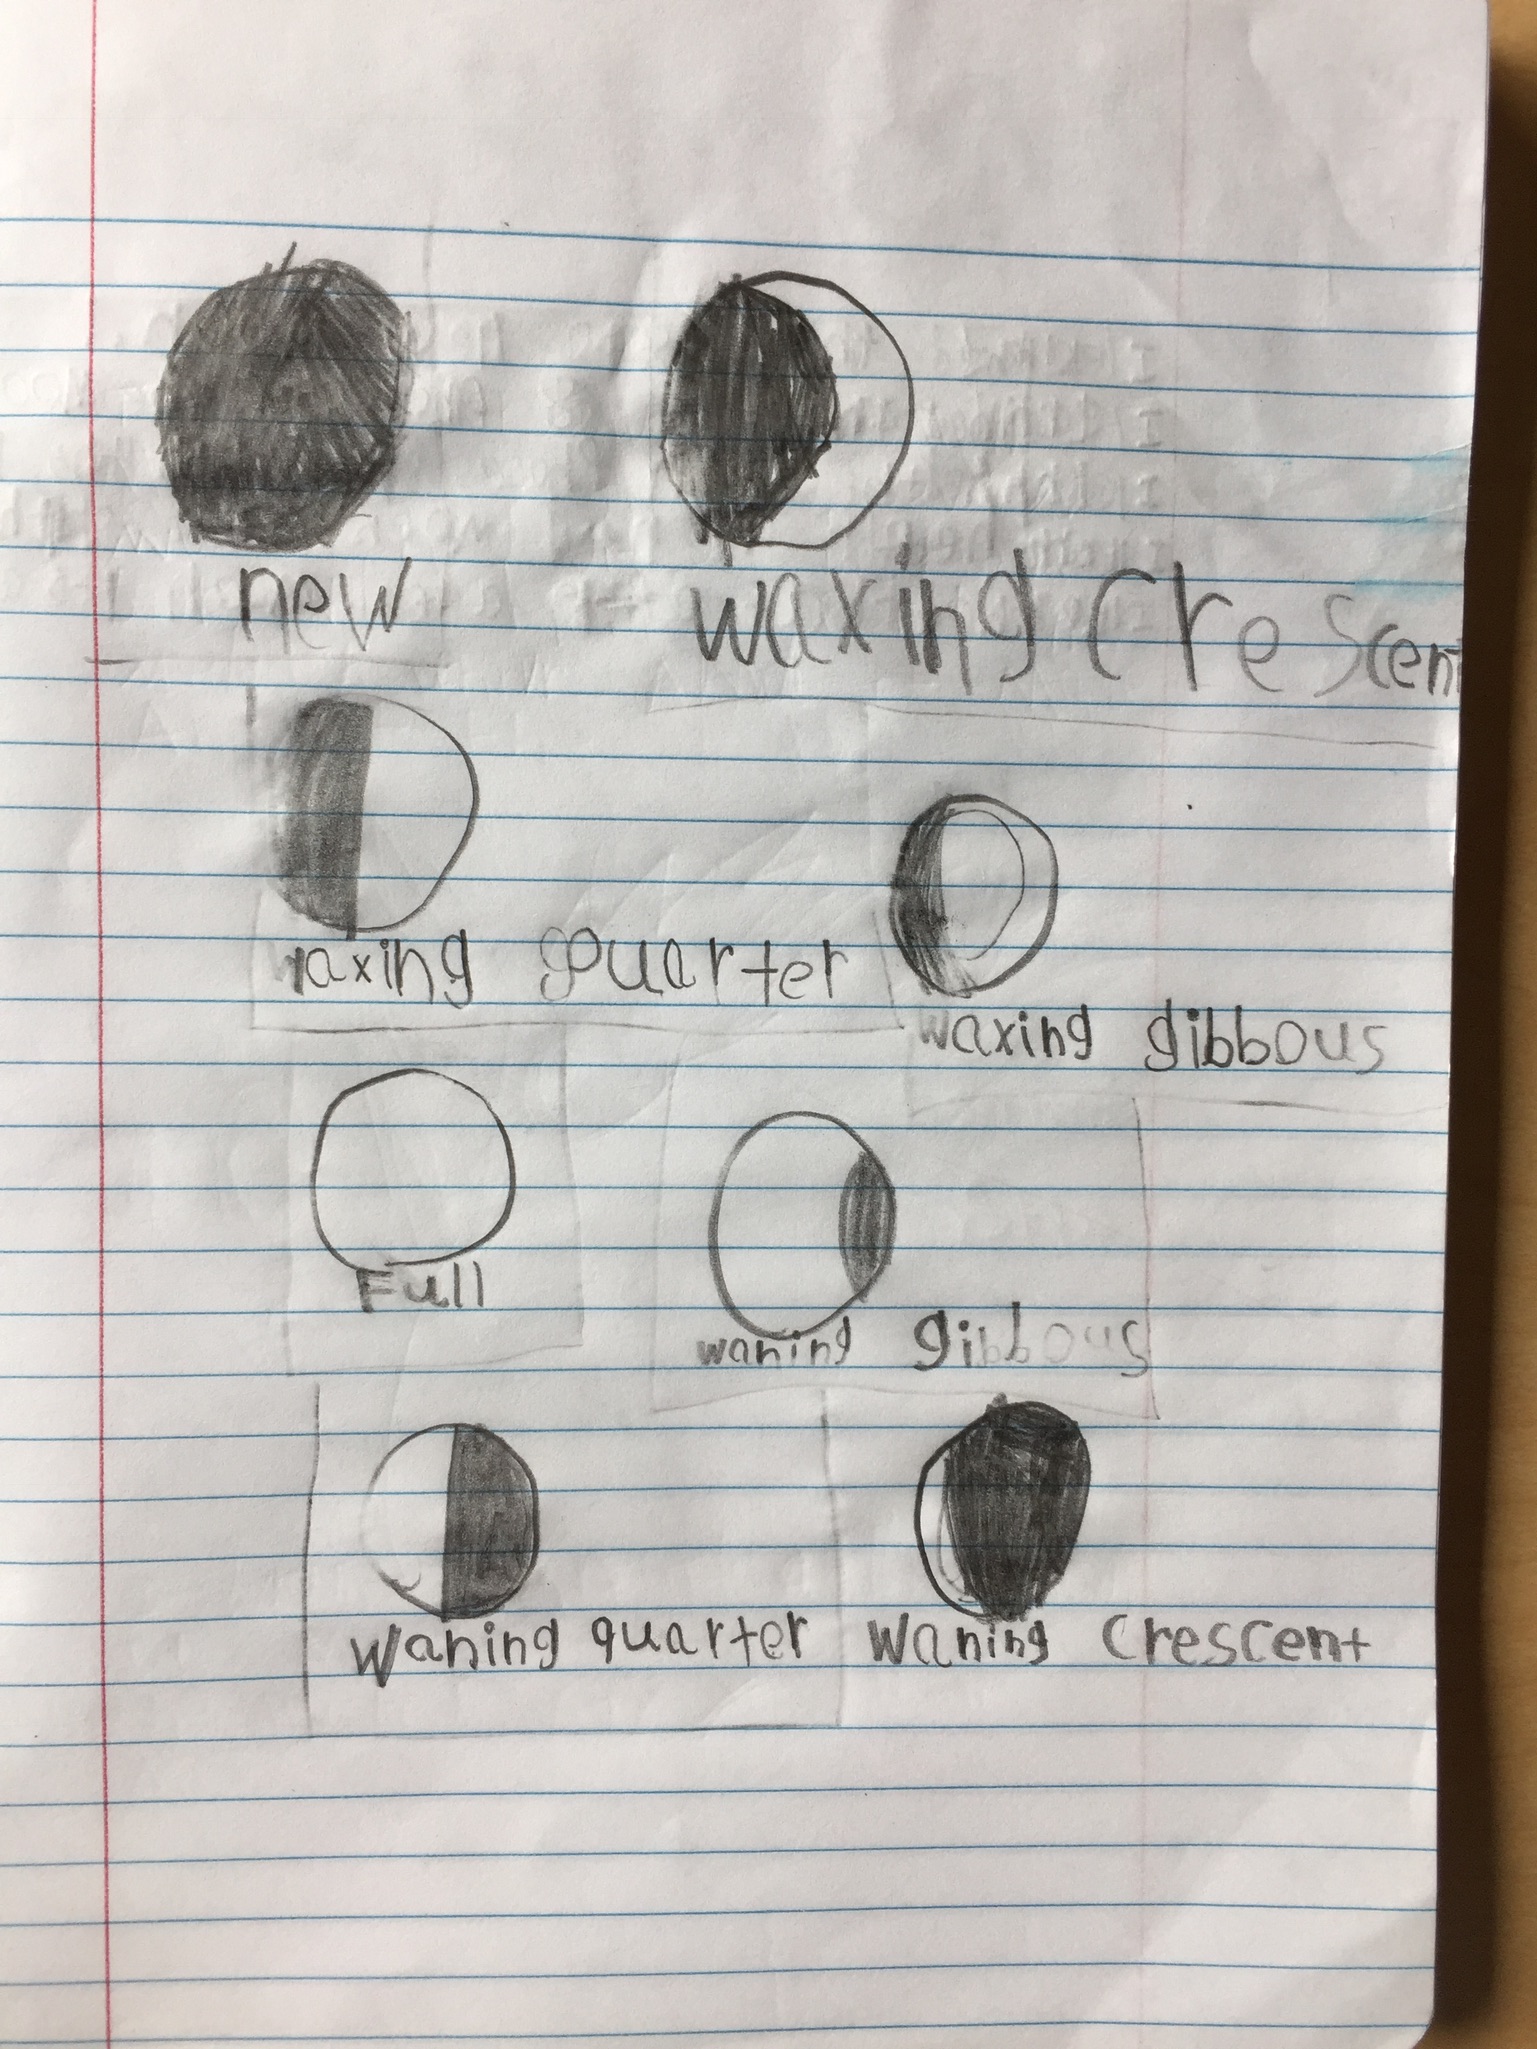 new
waxing crescent
waxing quarter
waxing gibbous
Full
waning gibbous
waning quarter
waning crescent